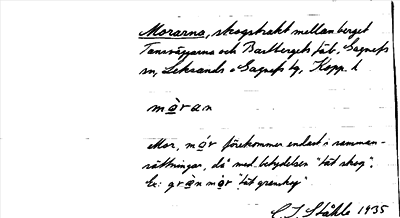 Morarna, skogstrakt mellan berget
Tansväggarna och Bastbergets fäb., Gagnefs
sn, Leksands o Gagnefs tg, Kopp. l
mòran
Mor, mór förekommer endast i samman-
sättningar, då med betydelsen "tät skog".
Ex: gràn mór "tät granskog"
C. I. Ståhle 1935